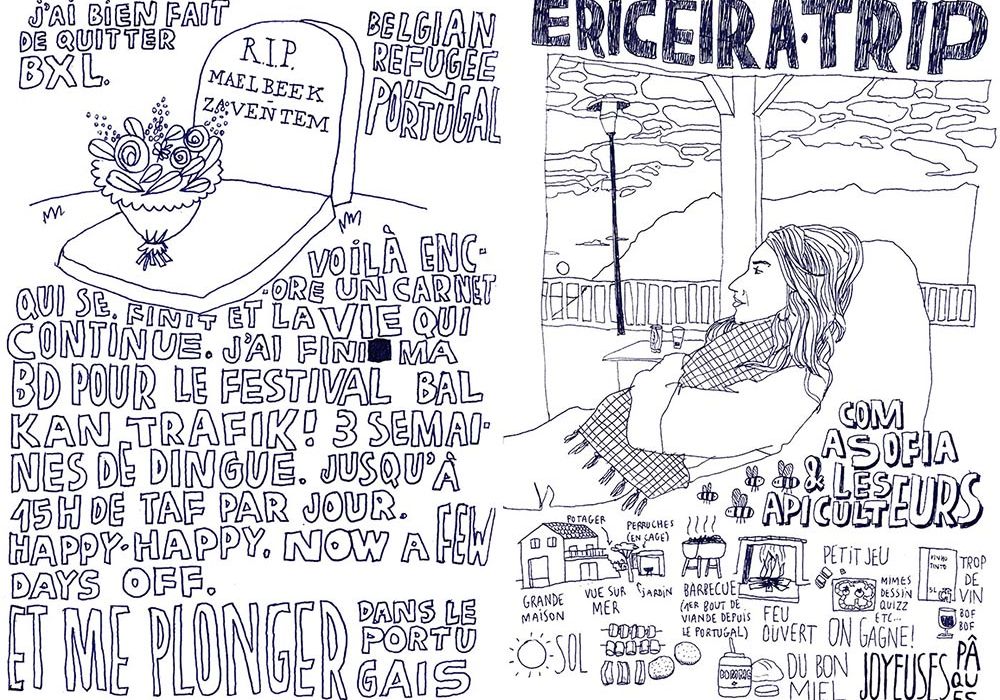 J'AI BIEN FAIT
DE QUITTER
BXL.
R.I.P.
MAELBEEK
-
ZAVENTEM
BELGIAN
REFUGEE
IN
PORTUGAL
VOILÀ ENC-
ORE UN CARNET
QUI SE FINIT ET LA VIE QUI
CONTINUE. J'AI FINI MA
BD POUR LE FESTIVAL BAL
KAN TRAFIK! 3 SEMAI-
NES DE DINGUE. JUSQU'À
15H DE TAF PAR JOUR.
HAPPY-HAPPY. NOW A FEW
DAYS OFF.
ET ME PLONGER
DANS LE
PORTU
GAIS
ERICEIRA·TRIP
COM
A SOFIA
& LES
APICULTEURS
POTAGER
PERRUCHES
(EN CAGE)
GRANDE
MAISON
VUE SUR
MER
JARDIN
BARBECUE
(1ER BOUT DE
VIANDE DEPUIS
LE PORTUGAL)
FEU
OUVERT
PETIT JEU
MIMES
DESSIN
QUIZZ
ETC...
ON GAGNE!
VINHO
TINTO
5L
TROP
DE
VIN
BOF
BOF
SOL
DU BON
MIEL
JOYEUSES
PÂQUES